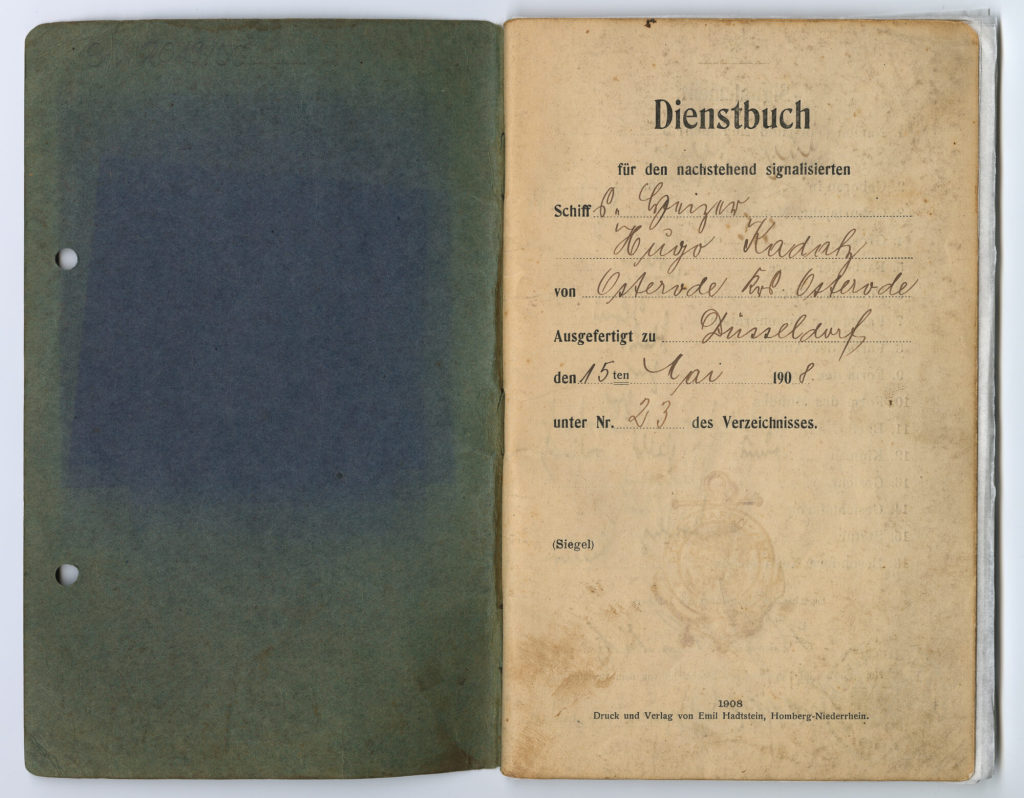 Dienstbuch
für den nachstehend signalisierten
Schiffs. Heizer
Hugo Kadatz
von Osterode Krs. Osterode
Ausgefertigt zu Düsseldorf
den 15ten Mai 1908.
unter Nr. 23 des Verzeichnisses.
(Siegel)
1908
Druck und Verlag von Emil Hadtstein, Homberg-Niederrhein.